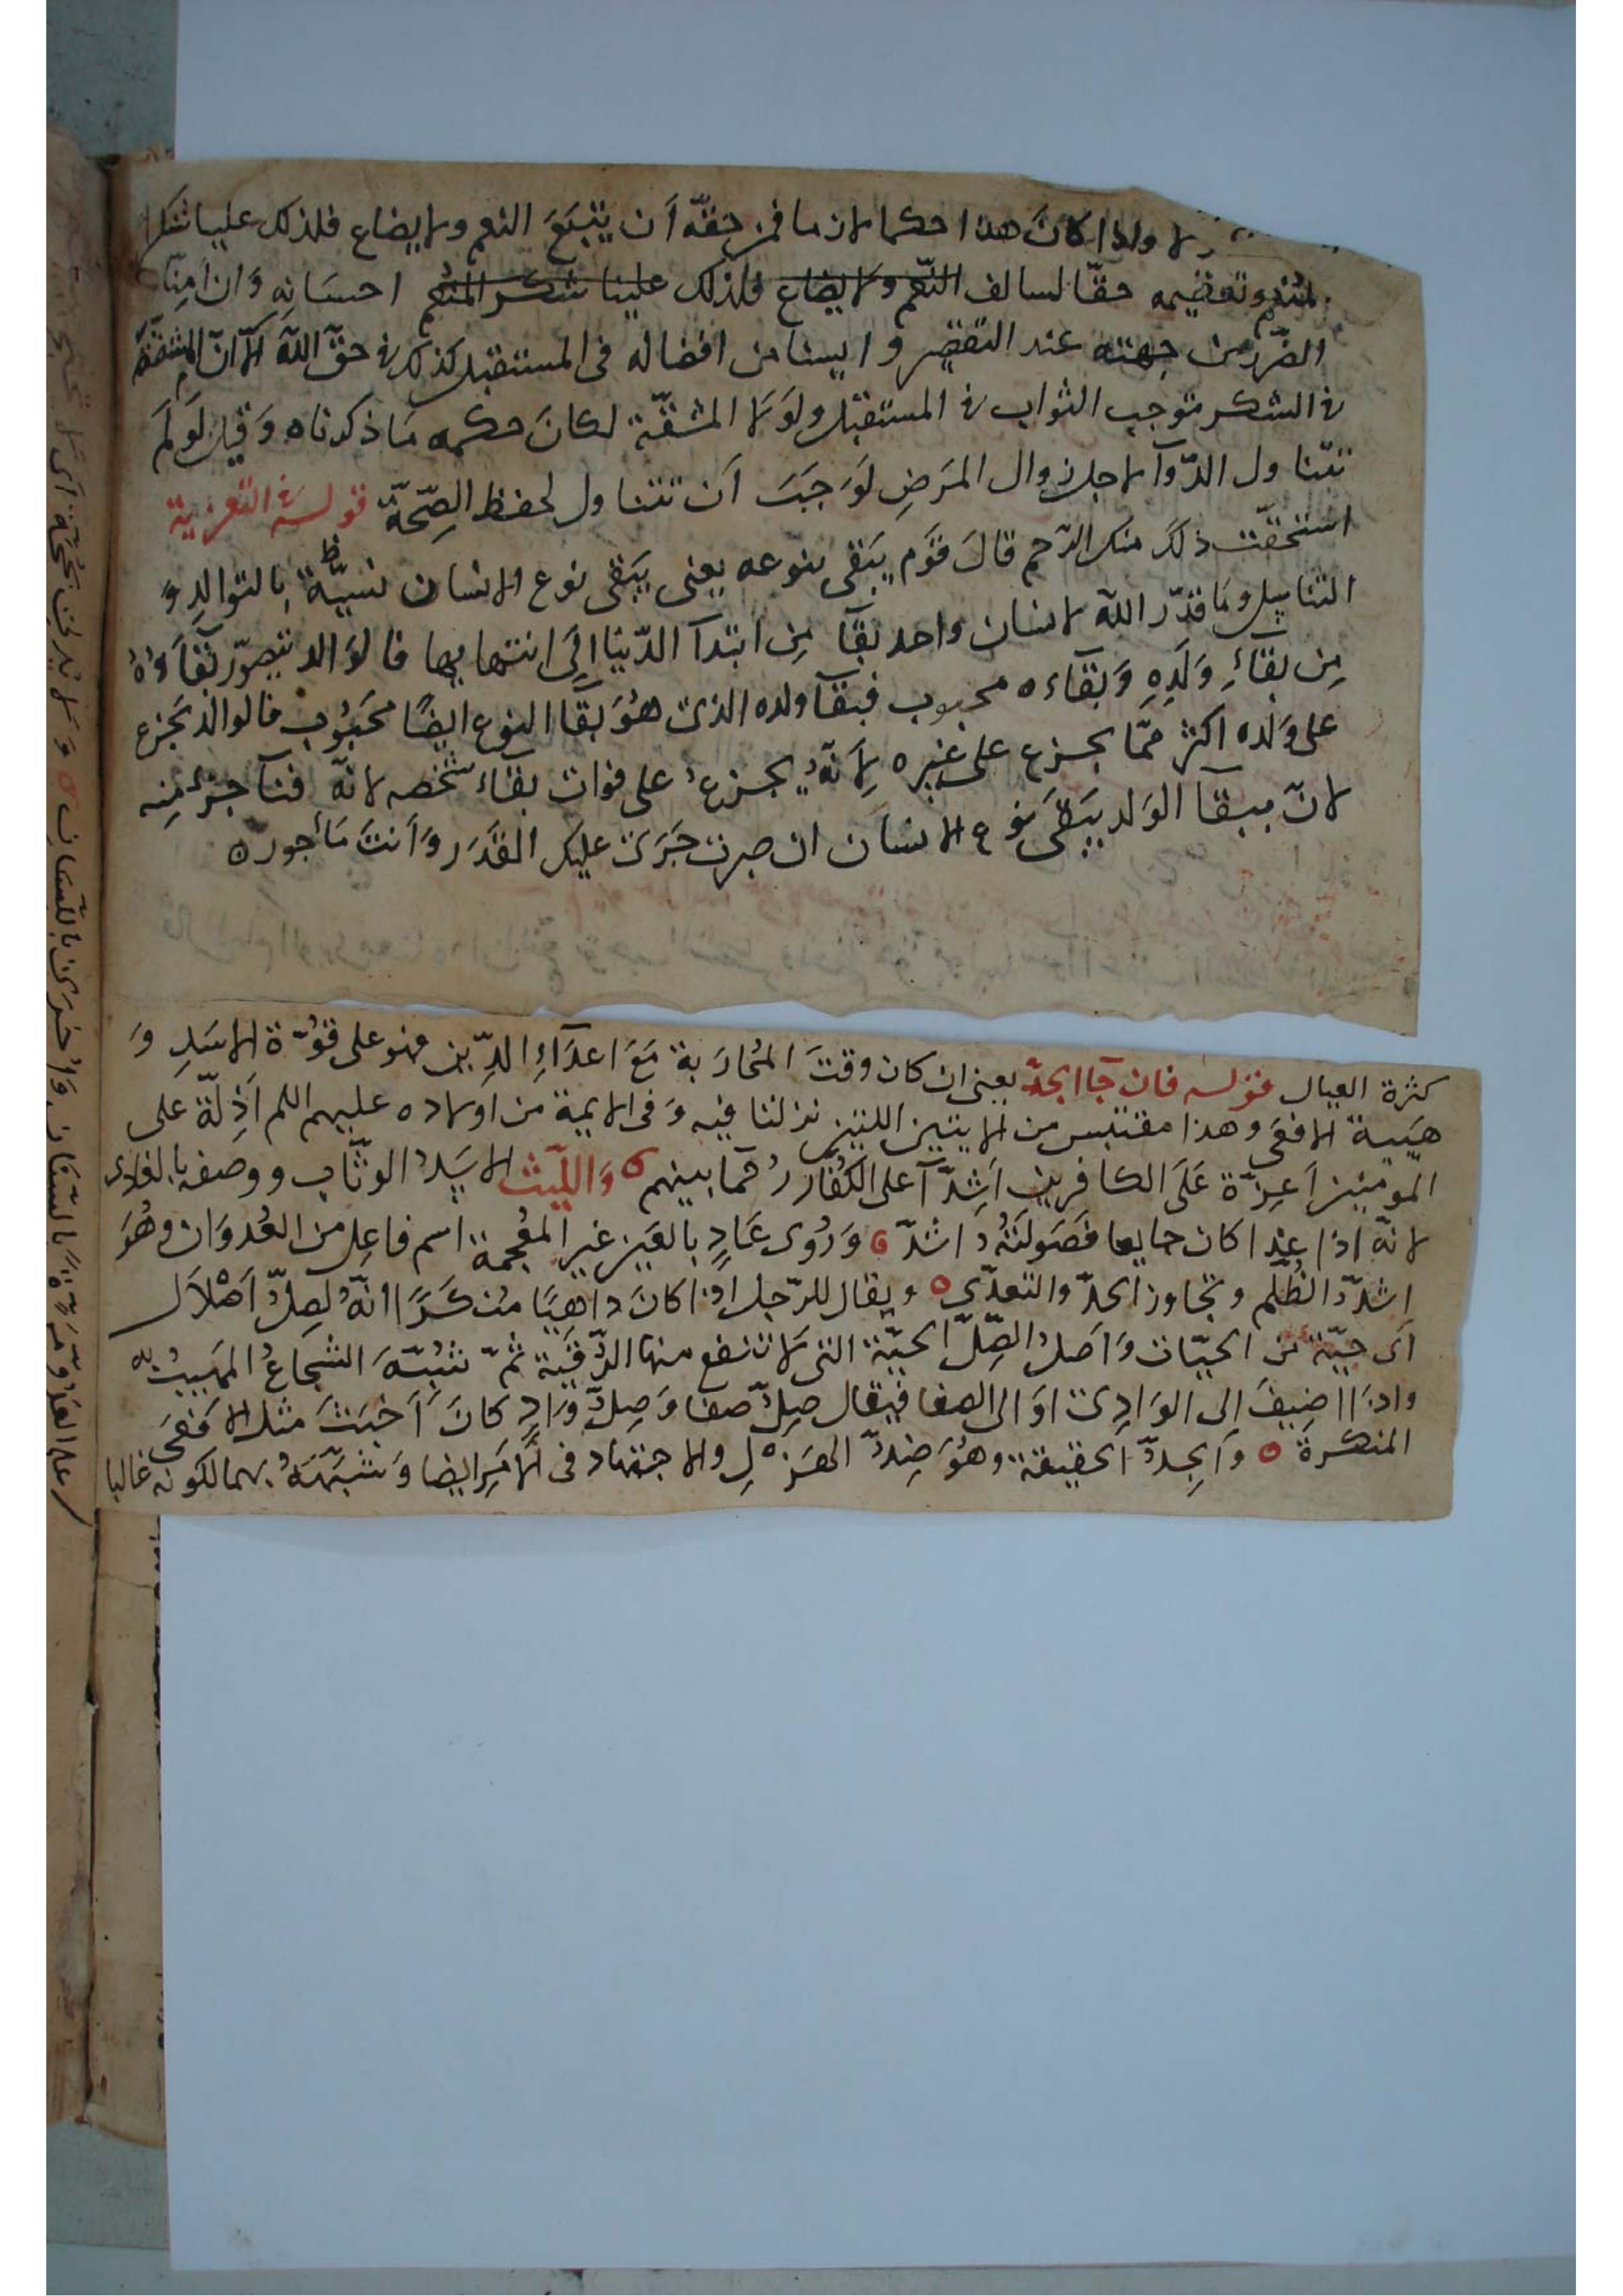 لا واذا كان هذا حكما لازما فمن حقّه أن يتبَعَ النعم ولا يضاع فلذلك علينا شكر
المنعم وتعظيمه حقّا لسالف النّعم ولا يضاع فلذلك علينا شكر المنعم احسَانِهِ وَان امِنّا
الضّرر من جهته عند التقصير وايسنا من افضاله فى المستقبل كذلك فى حقّ اللّه الّا انّ المشقّة
فى الشكر توجب الثواب فى المستقبل ولوَلا المشقّة لكانَ حكمه مَا ذكرناه وَقيل لَو لَم
تتناول الدّوآ لاجل زوال المرَضِ لوَجَبَ اَن تتناول لحفظ الصِّحّة قوله فى التعزية
استحقّت ذلكَ منك الرّحم قالَ قوم يَبَقى بنوعه يعنى يَبَقى نوع الانسان نسيّة بِالتوالدِ وَ
التناسِل ومَا قدّر اللّه لانسان واحد بقآ مِن ابتدآ الدّنيا اِلَى انتهايها فالوَالد يتصوّر بَقآءَهُ
مِن بقآءِ وَلَدِهِ وَبقاءه محبوب فبقآ ولده الذى هُوَ بقآ النوع ايضًا محَبُوب فالوالد يَجزع
على وَلده اكثر ممّا يجزع على غيره لِاَنّهُ يجزعُ على فوات بقاء شخصه لانّه فنآ جزءٍ مِنه
لانّ ببقآ الوَلد يَبَقى نوع الانسَان ان صبرت جَرَى عليك القَدَر وَاَنتَ مَأجور ه
كثرة العيال قوله فان جآ الجدّ يعنى ان كان وقتَ المُحارَبة مَعَ اعدَآءِ الدِّين فهو على قوُّة الاسَدِ وَ
هيبة الافعَى وهذا مقتبس من الايتين اللتين نزلتا فيه وَفى الايمة من اولاده عليهم السلم اَذِلّة على
المؤمنين اَعِزّة عَلَى الكافرين اَشِدّآ على الكُفّار رُحمآ بينهم ه وَاللّيث الاسَدُ الوثّاب ووصفه بالغادى
لانّه اذا غدا كان جايعا فصَولتهُ اشدّ ه وَرُوى عَادٍ بالعَين غير المعُجمة اسم فاعِل من العُدوَان وهُوَ
اشدّ الظُلم وتجاوز الحدّ والتعدّى ه ويقال للرّجل اذا كانَ دَاهيًا مُنكَرًا انّهُ لصِلُّ اَصْلاَل
اَى حيّة من الحيّات وَاَصلُ الصِّلّ الحيّة التى لَا تنفع منها الرّقية ثمّ شُبّهَ الشجاعُ المهيبُ به
واذَا اضِيفَ الى الوَادِى اَو الى الصفا فيقال صِلُّ صفا وَصِلُّ وَادٍ كانَ اَخبَثَ مثل الافعَى
المنكرة ه وَالجِدُّ الحقيقة وهُوَ ضِدُّ الهَزلِ والاجتهاد فى الاَمرِ ايضا وَشبّهَهُ بهما لكونه غالبا
على العَدُوّ